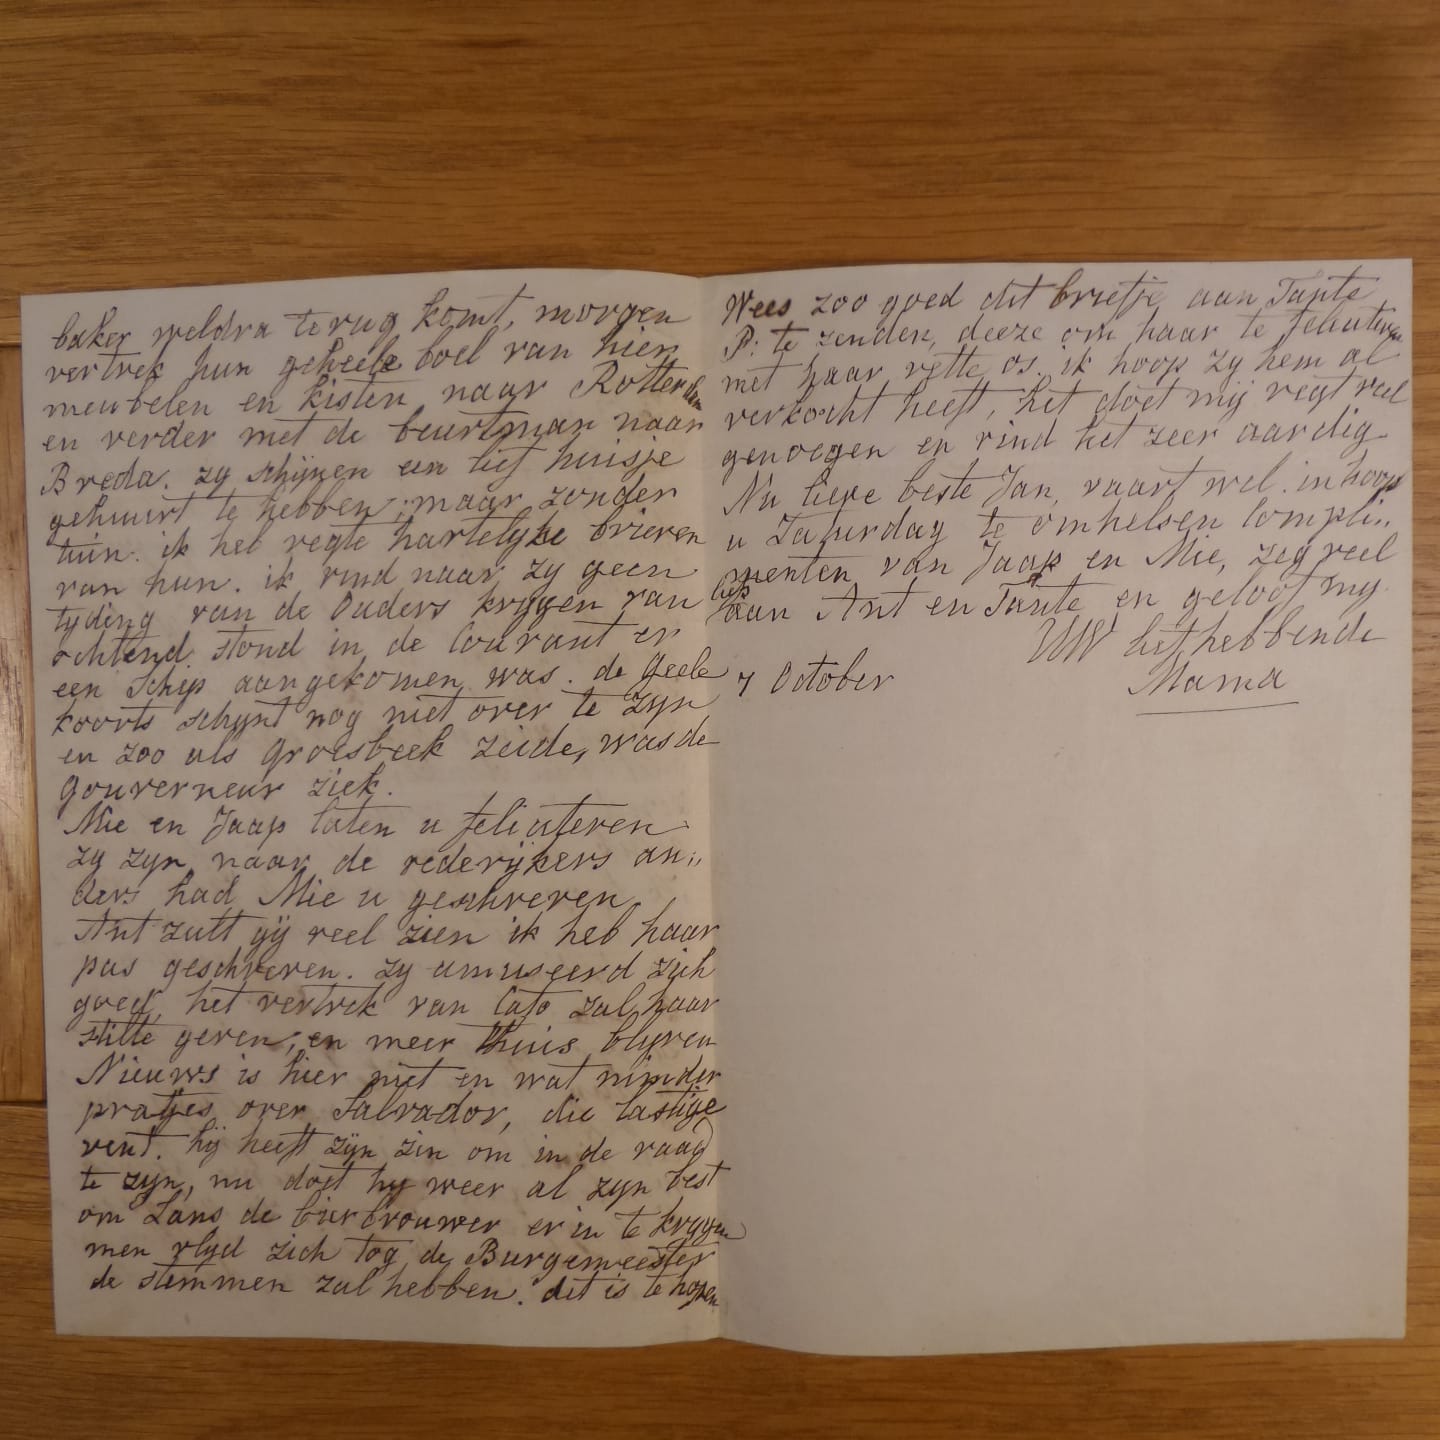 baker weldra terug komt, morgen
vertrek hun geheele boel van hier
meubelen en kisten naar Rotterdam
en verder met de beurtman naar
Breda. zy schijnen een lief huisje
gehuurt te hebben, maar zonder
tuin. ik heb regte hartelyke brieven
van hun. ik vind naar, zy geen
tyding van de Ouders krygen van
ochtend stond in de Courant er
een Schip aangekomen was. de geele
koorts schynt nog niet over te zyn
en zoo als Groesbeek zeide, was de
gouverneur ziek.
Mie en Jaap laten u feliciteren
zy zyn naar de rederijkers an,,
ders had Mie u geschreven
Ant zult gij veel zien ik heb haar
pas geschreven. zy amuseerd zich
goed, het vertrek van Cato zal haar
stilte geven, en meer thuis blyven
Nieuws is hier niet en wat minder
praatjes over Salvador, die lastige
vent. hij heeft zijn zin om in de raad
te zyn, nu doet hy weer al zyn best
om Lans de bierbrouwer er in te krygen
men vlyd zich tog de Burgemeester
de stemmen zal hebben. dit is te hopen
Wees zoo goed dit briefje aan Tante
P: te zenden, deeze om haar te feliciteren
met haar vette os. ik hoop zy hem al
verkocht heeft, het doet mij regt veel
genoegen en vind het zeer aardig
Nu lieve beste Jan, vaart wel. in hoop
u Zaturdag te omhelsen Compli,,
menten van Jaap en Mie, zeg veel
liefs
aan Ant en Tante en geloof my
UW liefhebbende
7 October
Mama